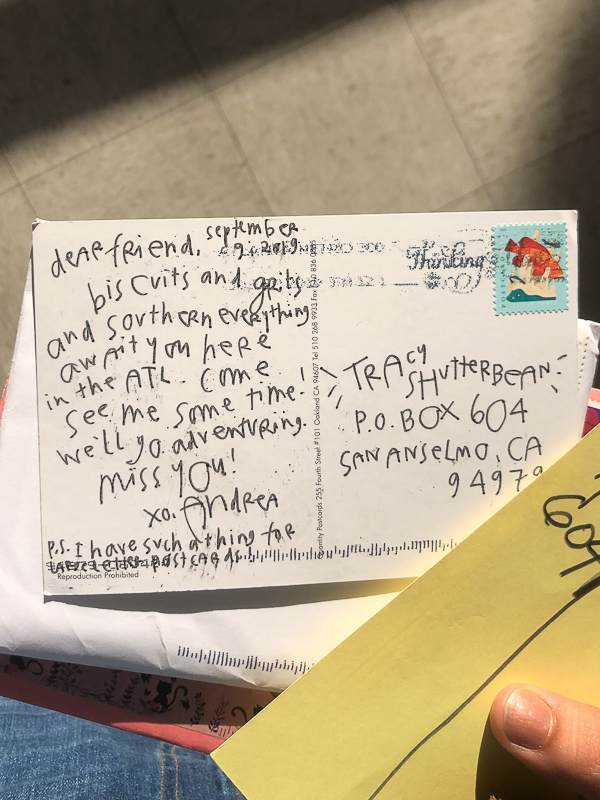 dear friend, september
9, 2019
biscuits and grits
and southern everything
await you here
in the ATL. come
see me some time!
we'll go adventuring.
miss you!
xo, Andrea
P.S. I have such a thing for
postcards.
Reproduction Prohibited
Quantity Postcards 255 Fourth Street #101 Oakland CA 94607 Tel 510 268 9933 Fax 510 836
Thinking
TRAcy
SHutterBEAN
P.O. BOX 604
SAN ANSELMO, CA
94979
604